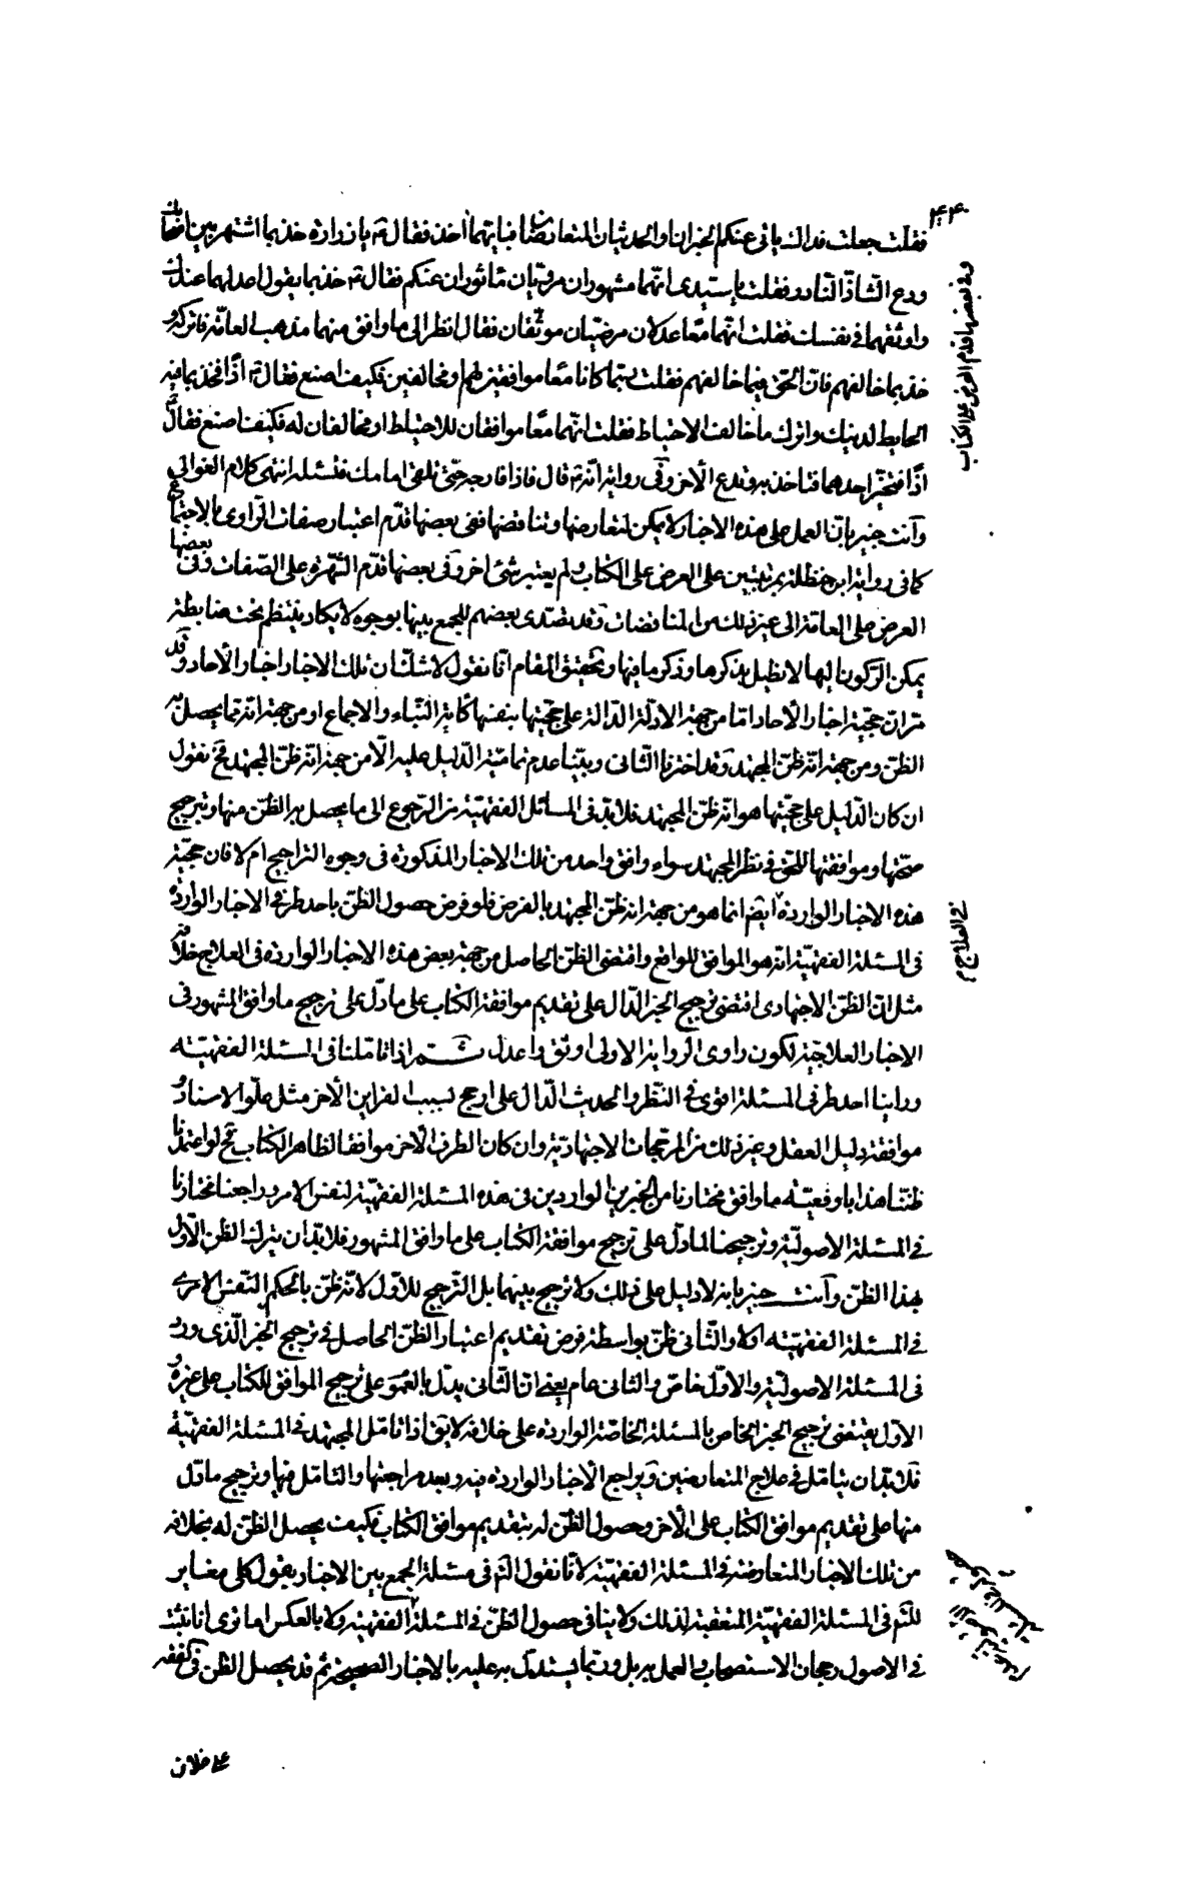 ۴۴۰
فقلت جعلت فداك يأتى عنكم الخبران والحديثان المتعارضان فبايهما اخذ فقال ع يا زرارة خذ بما اشتهر بين اصحابك
ودع الشاذ النادر فقلت يا سيدى انهما مشهوران مرويان مأثوران عنكم فقال ع خذ بما يقول اعدلهما عندك
واوثقهما فى نفسك فقلت انهما معا عدلان مرضيان موثقان فقال انظر الى ما وافق منهما مذهب العامة فاتركه و
خذ بما خالفهم فان الحق فيما خالفهم فقلت ربما كانا معا موافقين لهم او مخالفين فكيف اصنع فقال ع اذًا فخذ بما فيه
الحايط لدينك واترك ما خالف الاحتياط فقلت انهما معًا موافقان للاحتياط او مخالفان له فكيف اصنع فقال ع
اذًا فتخير احدهما فتاخذ به وتدع الأخر وفى رواية انه ع قال فاذًا فارجه حتى تلقى امامك فتسئله انتهى كلام الغوالى
وانت خبير بان العمل على هذه الاخبار لا يمكن لتعارضها وتناقضها ففى بعضها قدم اعتبار صفات الراوى بالاجتماع
كما فى رواية ابن حنظلة بمرتبتين على العرض على الكتاب ولم يعتبر شئ اخر وفى بعضها قدم الشهرة على الصفات وفى بعضها
العرض على العامة الى غير ذلك من المناقضات وقد تصدى بعضهم للجمع بينها بوجوه لا يكاد ينتظم تحت ضابطة
يمكن الركون اليها لا نطيل بذكرها وذكر ما فيها وتحقيق المقام انا نقول لا شك ان تلك الاخبار اخبار الأحاد وقد
مر ان حجية اخبار الأحاد اما من جهة الادلة الدالة على حجيتها بنفسها كأية النباء والاجماع او من جهة انه مما يحصل به
الظن ومن جهة انه ظن المجتهد وقد اخترنا الثانى وبينا عدم تمامية الدليل عليه الا من جهة انه ظن المجتهد فح نقول
ان كان الدليل على حجيتها هو انه ظن المجتهد فلابد فى المسائل الفقهية من الرجوع الى ما يحصل به الظن منها وترجيح
صحتها وموافقتها للحق فى نظر المجتهد سواء وافق واحد من تلك الاخبار المذكورة فى وجوه التراجيح ام لا فان حجية
هذه الاخبار الواردة ايضا انما هو من جهة انه ظن المجتهد بالفرض فلو فرض حصول الظن باحد طرفى الاخبار الواردة
فى المسئلة الفقهية انه هو الموافق للواقع واقتضى الظن الحاصل من جهة بعض هذه الاخبار الواردة فى العلاج خلافه
مثل ان الظن الاجتهادى اقتضى ترجيح الخبر الدال على تقديم موافقة الكتاب على ما دل على ترجيح ما وافق المشهور فى
الاخبار العلاجية لكون راوى الرواية الاولى اوثق واعدل ثم اذا تاملنا فى المسئلة الفقهية
وراينا احد طرفى المسئلة اقوى فى النظر والحديث الدال على ارجح بسبب القراين الأخر مثل علو الاسناد و
موافقة دليل العقل وغير ذلك من المرجحات الاجتهادية وان كان الطرف الأخر موافقا لظاهر الكتاب فح لو اعتمدنا
ظننا هذا باوفقية ما وافق مختارنا من الخبرين الواردين فى هذه المسئلة الفقهية لنفس الامر وراجعنا مختارنا
فى المسئلة الاصولية وترجيحنا لما دل على ترجيح موافقة الكتاب على ما وافق المشهور فلابد ان يترك الظن الاول
بهذا الظن وانت خبير بانه لا دليل على ذلك ولا ترجيح بينهما بل الترجيح للاول لانه ظن بالحكم النفس الامرى
فى المسئلة الفقهية اولا والثانى ظن بواسطة فرض تقديم اعتبار الظن الحاصل فى ترجيح الخبر الذى ورد
فى المسئلة الاصولية والاول خاص والثانى عام يعنى ان الثانى يدل بالعموم على ترجيح الموافق للكتاب على غيره و
الاول يقتضى ترجيح الخبر الخاص بالمسئلة الخاصة الواردة على خلافه لا يق اذا تامل المجتهد فى المسئلة الفقهية
فلابد ان يتامل فى علاج المتعارضين ويراجع الأخبار الواردة فيه وبعد مراجعتها والتامل فيها وترجيح ما دل
منها على تقديم موافق الكتاب على الأخر وحصول الظن له بتقديم موافق الكتاب فكيف يحصل الظن له بخلافه
من تلك الاخبار المتعارضة فى المسئلة الفقهية لانا نقول التم فى مسئلة الجمع بين الاخبار بقول كلى مغاير
للتم فى المسئلة الفقهية المتعقبة لذلك ولا ينافى حصول الظن فى المسئلة الفقهية ولا بالعكس اما ترى انا نثبت
فى الاصول رجحان الاستصحاب والعمل به بل وربما يستدل به عليه بالاخبار الصحيحة ثم قد يحصل الظن فى الفقه
وفى بعضها قدم العرض على الكتاب
فى العلاج م
على خلاف